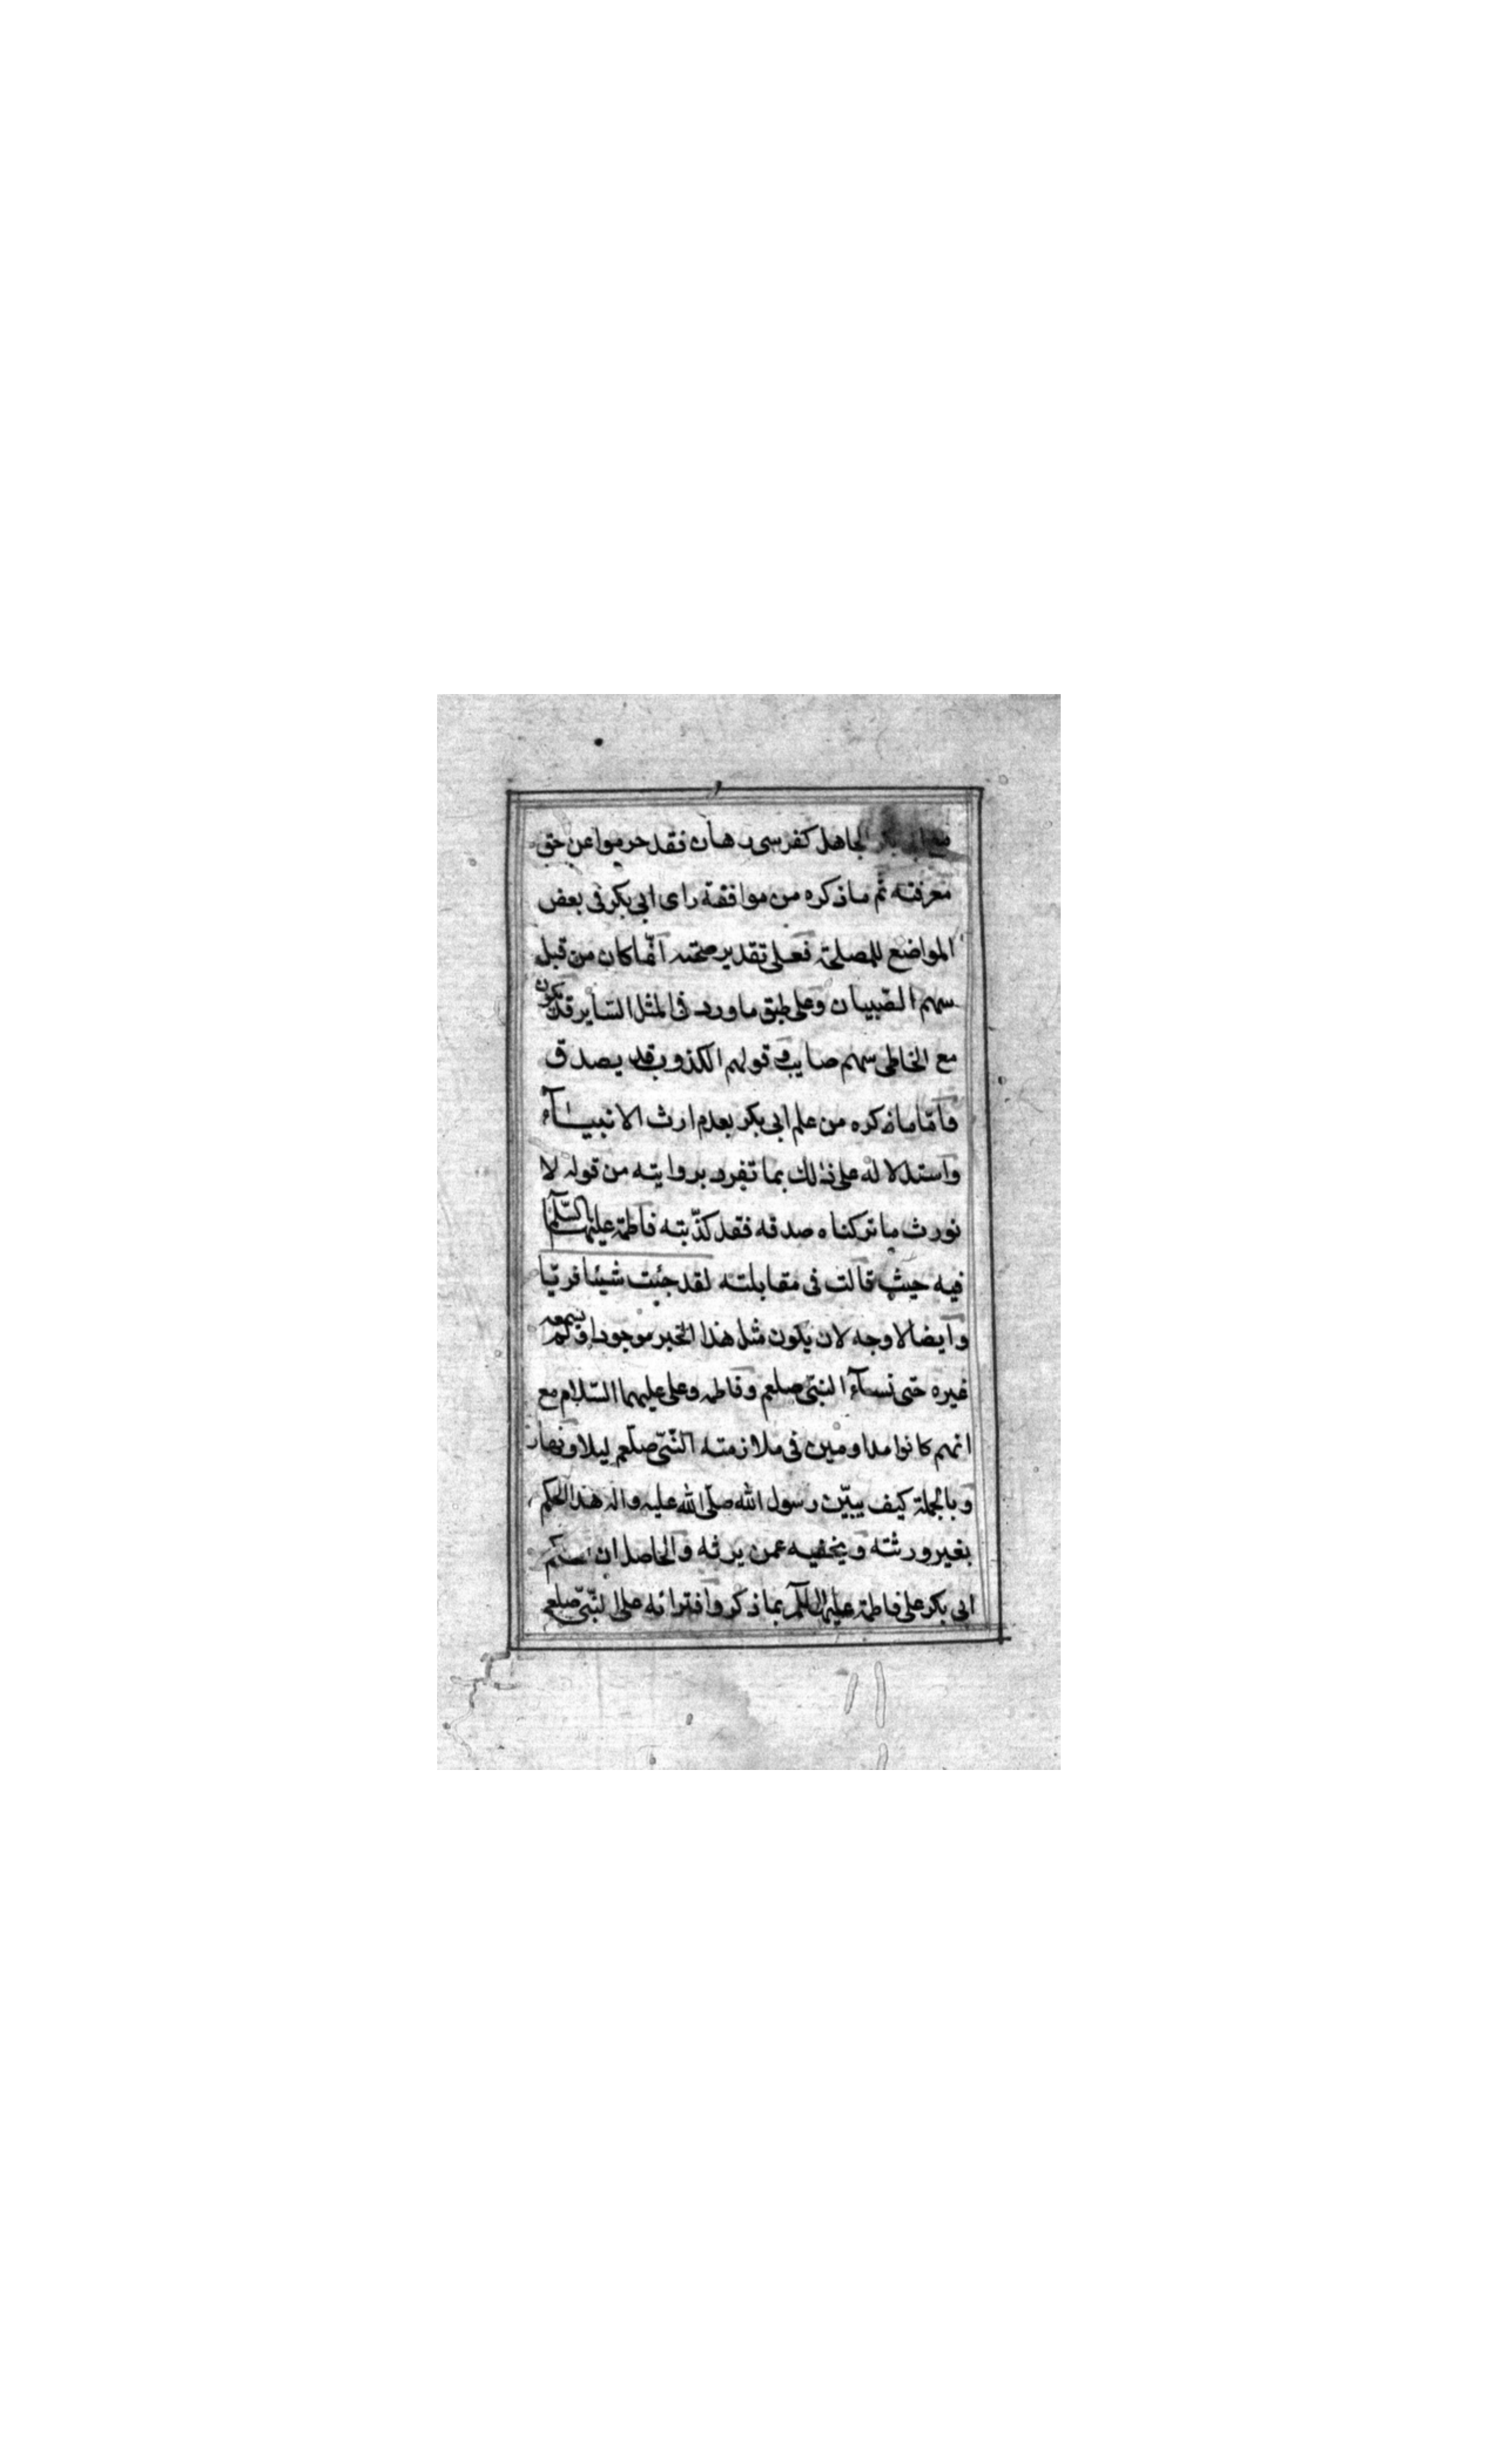 مع ابى بكر الجاهل كفرسى رهان فقد حرموا عن حق
معرفته ثم ما ذكره من موافقة راى ابى بكر فى بعض
المواضع للمصلحة فعلى تقدير صحته انّما كان من قبل
سهم الصّبيان وعلى طبق ما ورد فى المثل السّاير قد يكون
مع الخاطى سهم صايب وقولهم الكذوب قد يصدق
فامّا ما ذكره من علم ابى بكر بعدم ارث الانبيـآء
واستدلاله على ذلك بما تفرد بروايته من قوله لا
نورث ما تركناه صدقه فقد كذّبته فاطمة عليها السّلام
فيه حيث قالت فى مقابلته لقد جئت شيئا فريّا
وايضا لا وجه لان يكون مثل هذا الخبر موجودا ولم يسمعه
غيره حتى نسآء النبىّ صلعم وفاطمه وعلى عليهما السّلام مع
انهم كانوا مداومين فى ملازمته النّبىّ صلّعم ليلا ونهار
وبالجملة كيف يبيّن رسول الله صلّى الله عليه واله هذا الحكم
بغير ورثته ويخفيه عمن يرثه والحاصل ان
ابى بكر على فاطمة عليها السلام بما ذكر وافترائه على النّبىّ صلعم